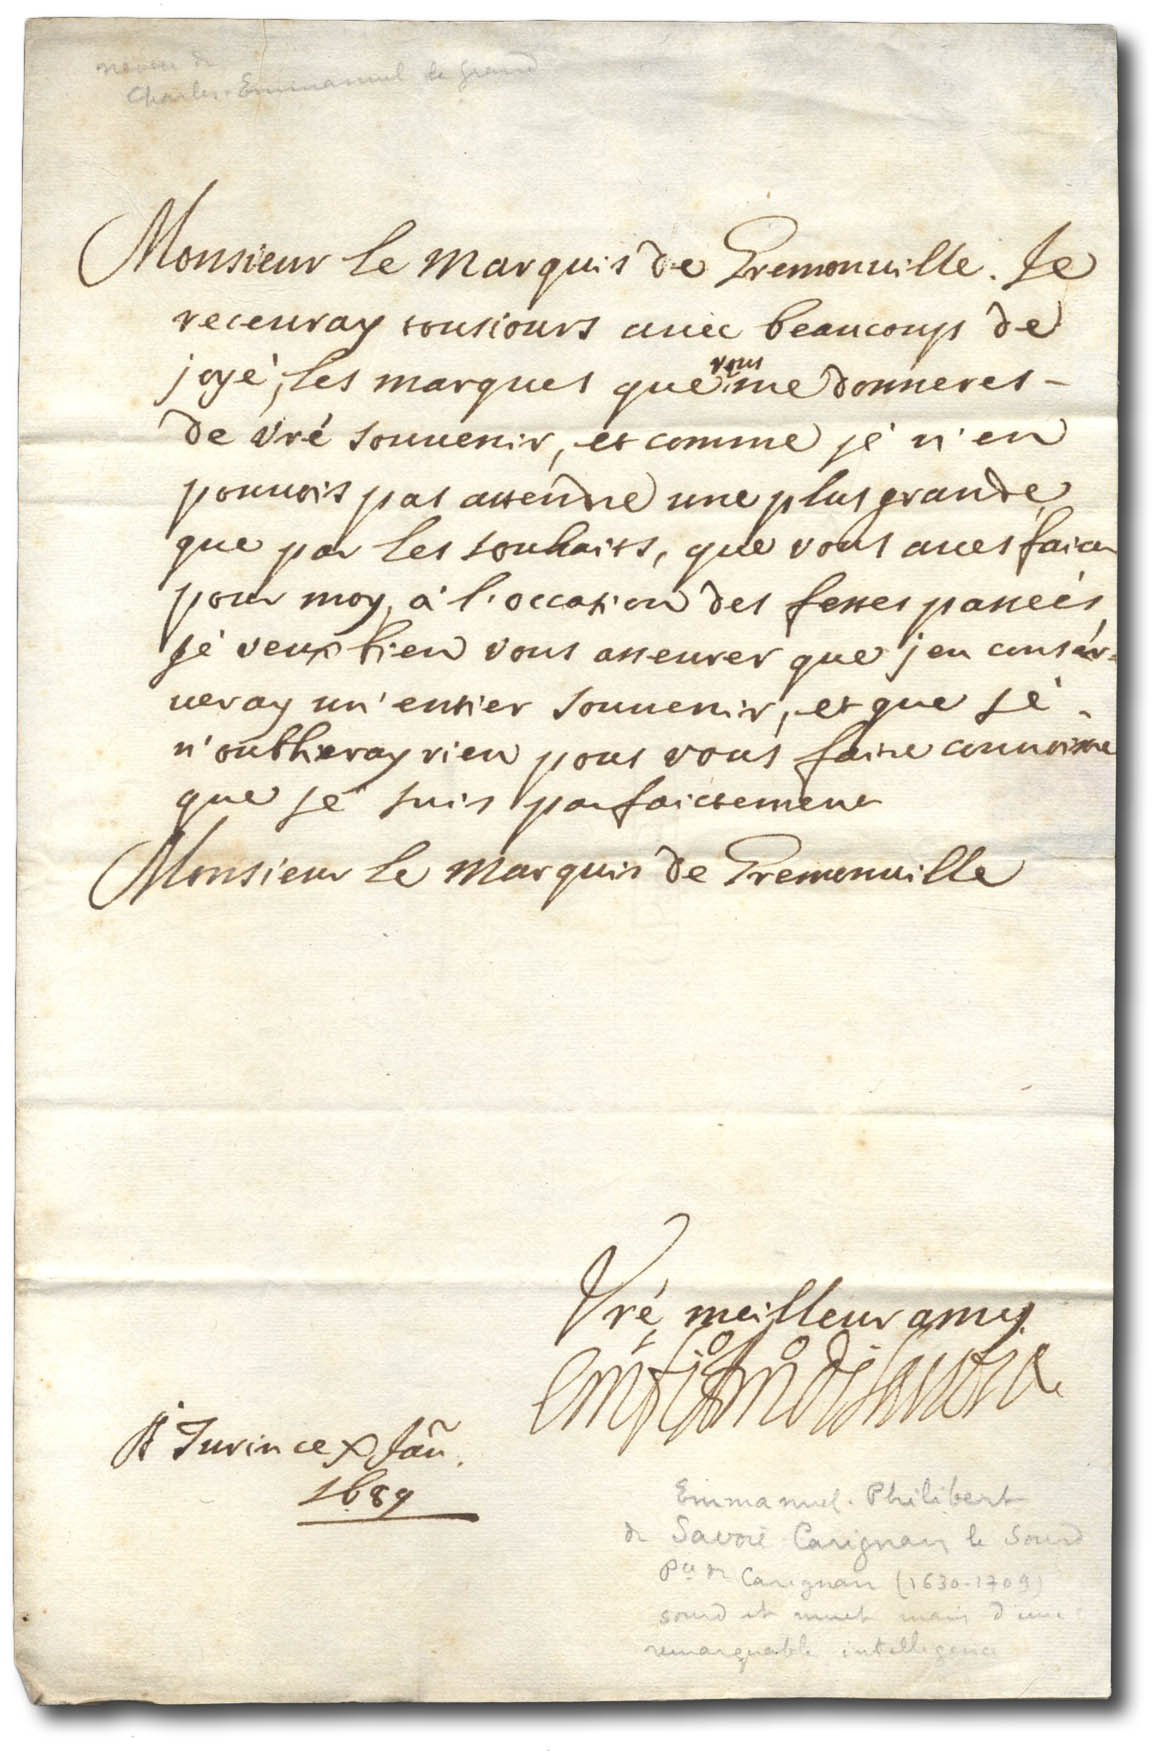 neveu de
Charles-Emmanuel le Grand
Monsieur le Marquis de Gremonuille. Je
receuray tousiours auec beaucoup de
joyé, les marques que vous me donneres-
de vré souuenir, et comme jé n'en
pouuois pas attendre une plus grande,
que par les souhaits, que vous aues faict
pour moy, a l'occasion des festes passeés
jé veux bien vous asseurer que j'en consér-
ueray un' entier souuenir, et que jé -
n'oublieray rien pour vous faire connoistre
que jé suis parfaictement
Monsieur le Marquis de Gremonuille
Vré meilleur amy
A Turin ce x Jañ.
1689
Emmanuel-Philibert
de Savoie Carignan le Sourd
Pce de Carignan (1630-1709)
sourd et muet mais d'une
remarquable intelligence